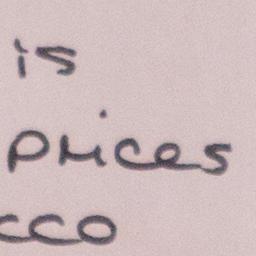 is
prices
cco